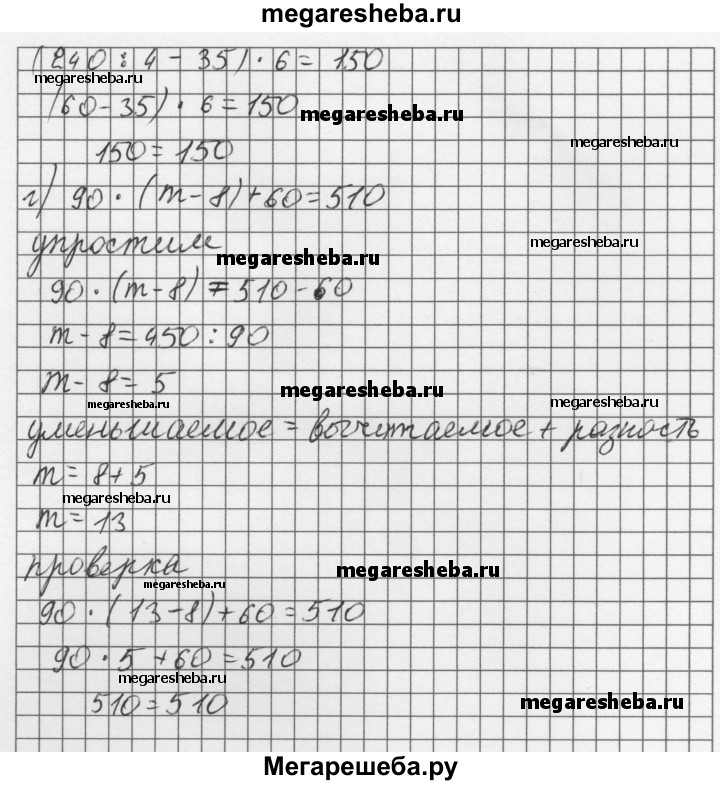 megaresheba.ru
(240 : 4 - 35) · 6 = 150
megaresheba.ru
(60 - 35) · 6 = 150
megaresheba.ru
megaresheba.ru
150 = 150
г) 90 · (m - 8) + 60 = 510
упростим
megaresheba.ru
megaresheba.ru
90 · (m - 8) = 510 - 60
m - 8 = 450 : 90
m - 8 = 5
megaresheba.ru
megaresheba.ru
megaresheba.ru
уменьшаемое = вычитаемое + разность
m = 8 + 5
megaresheba.ru
m = 13
проверка
megaresheba.ru
megaresheba.ru
90 · (13 - 8) + 60 = 510
90 · 5 + 60 = 510
megaresheba.ru
510 = 510
megaresheba.ru
Мегарешеба.ру